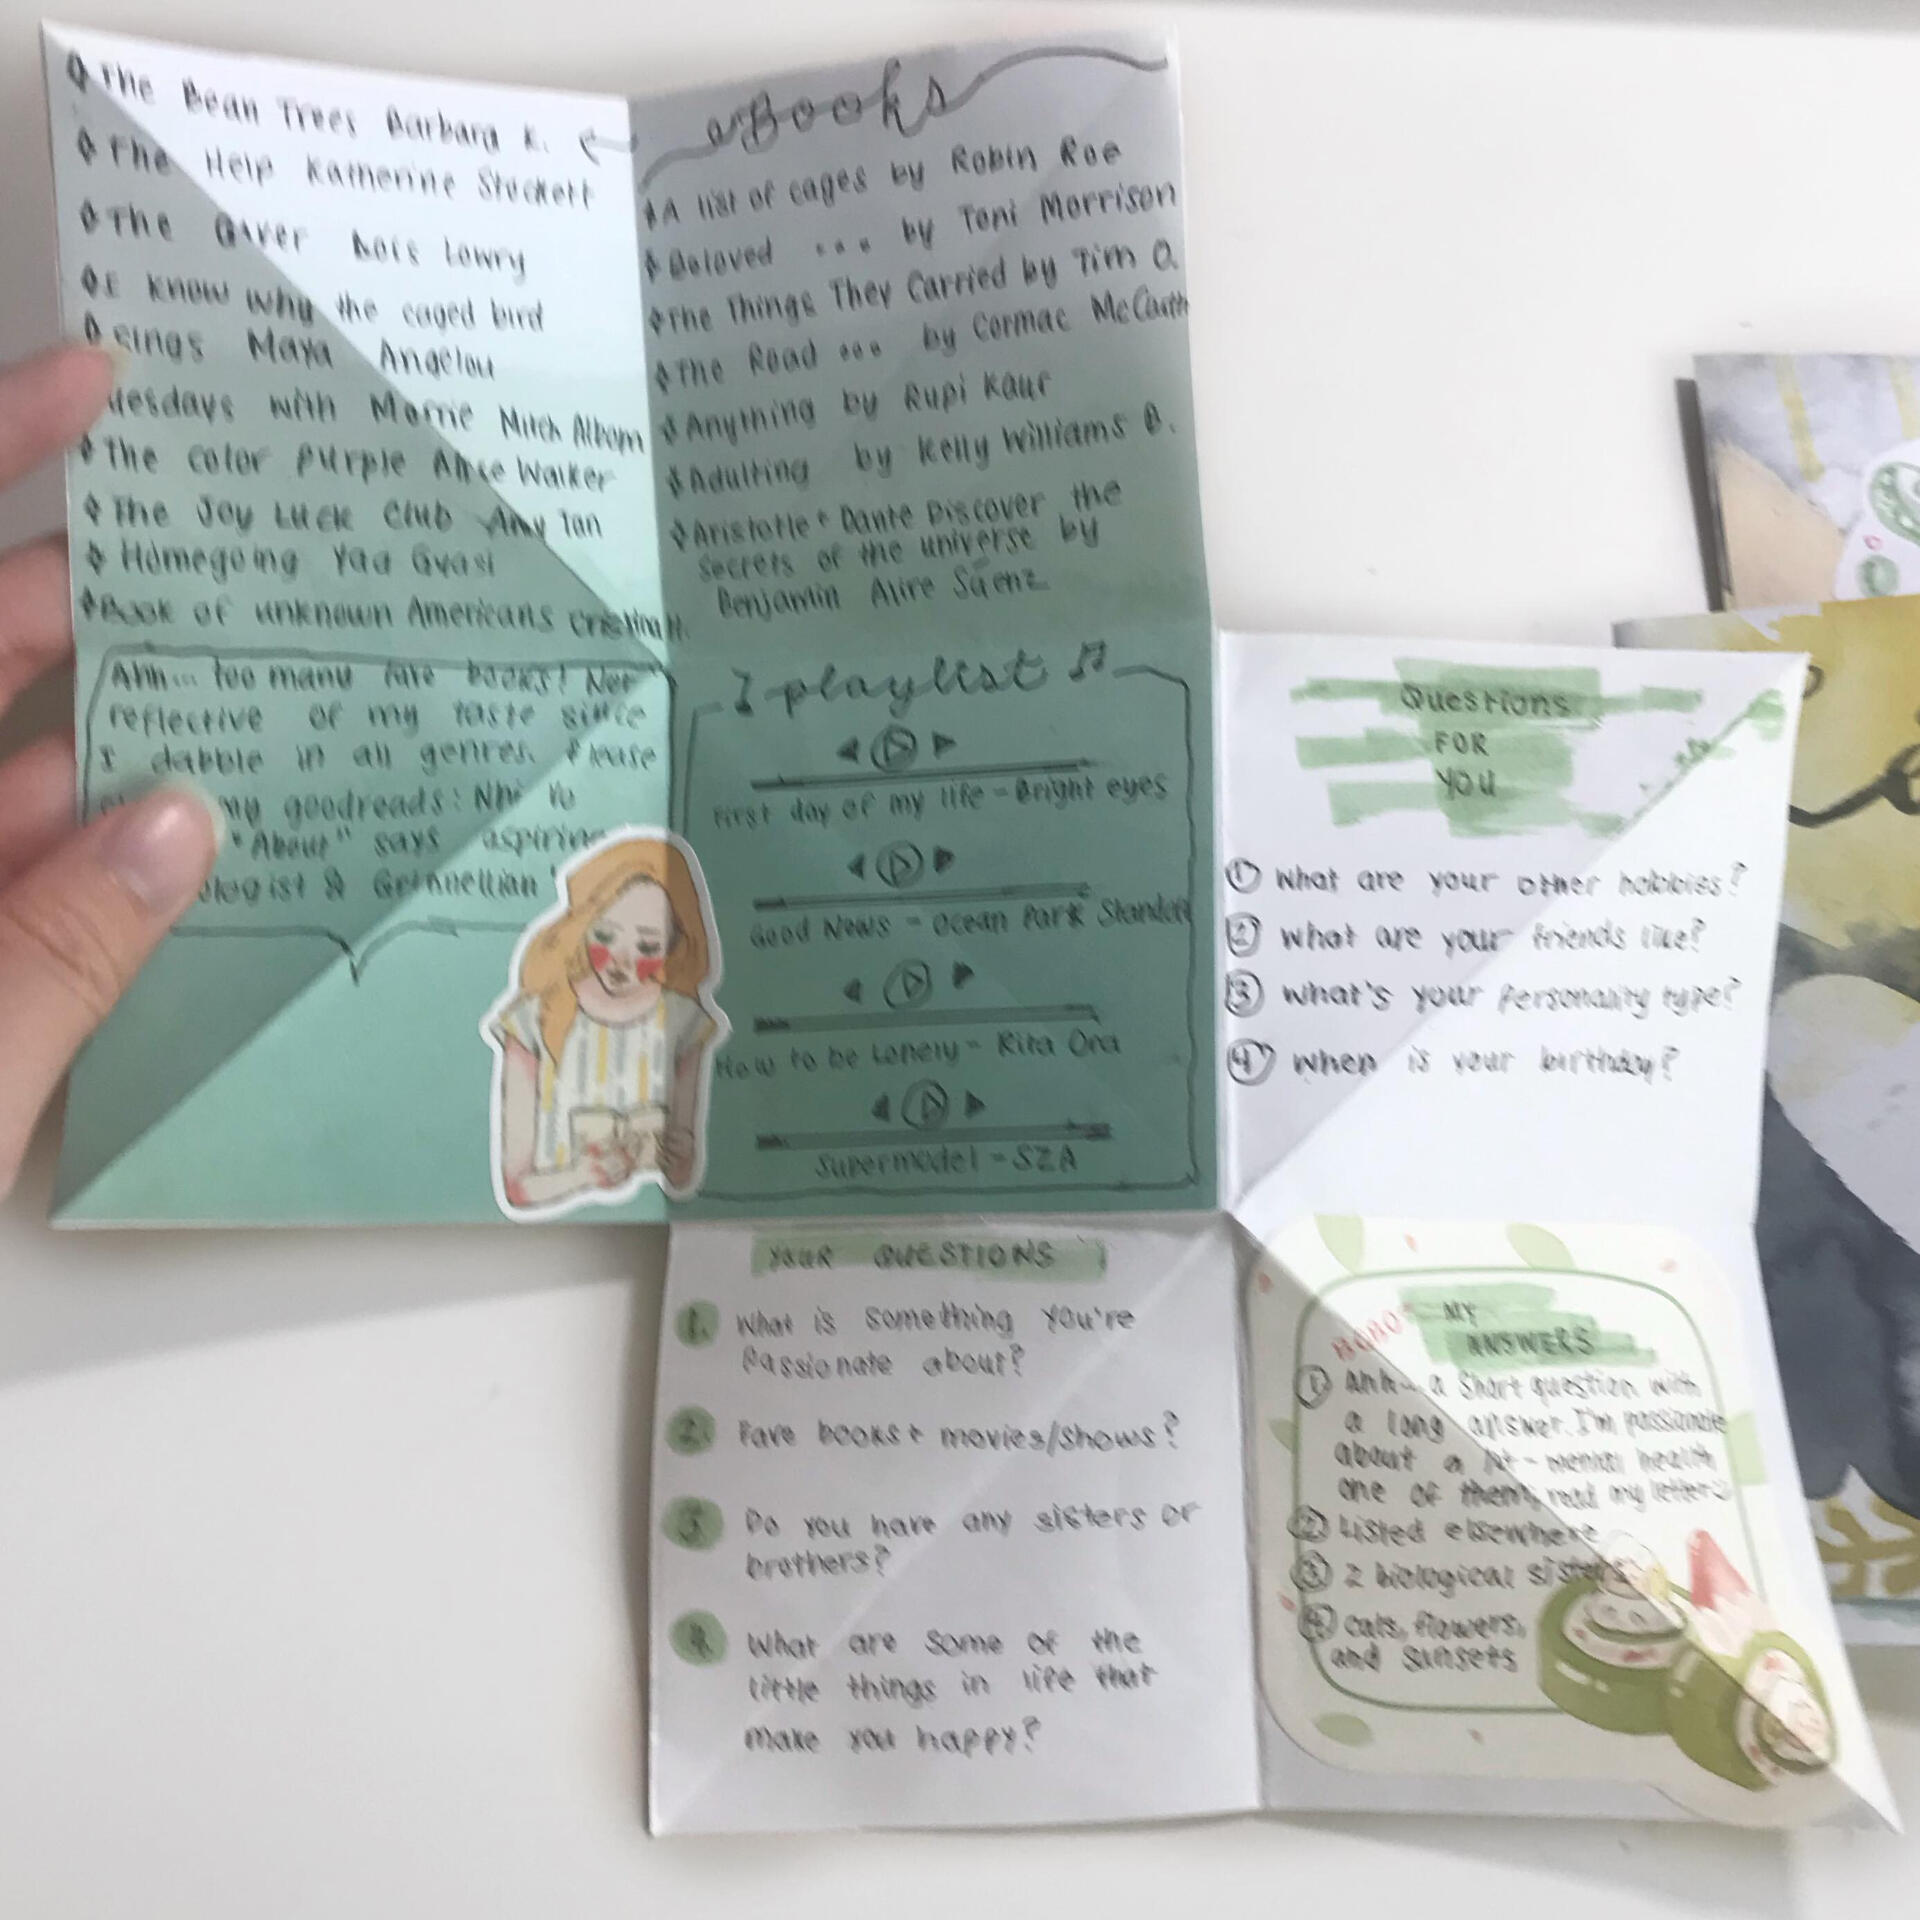 The Bean Trees Barbara K.
The Help Katherine Stockett
The Giver Lois Lowry
I know why the caged bird
sings Maya Angelou
uesdays with Morrie Mitch Albom
The color purple Alice Walker
The Joy Luck Club Amy Tan
Homegoing Yaa Gyasi
Book of unknown Americans Cristina H.
Ahh... too many fave books! Not
reflective of my taste since
I dabble in all genres. Please
my goodreads: Nhi Vo
"About" says aspiring
ologist & Grinnellian"
Books
A list of cages by Robin Roe
Beloved ... by Toni Morrison
The Things They Carried by Tim O.
The Road ... by Cormac McCarth
Anything by Rupi Kaur
Adulting by Kelly Williams B.
Aristotle + Dante Discover the
Secrets of the universe by
Benjamin Alire Sáenz
playlist
First day of my life - Bright eyes
Good News - Ocean Park Standoff
How to be Lonely - Rita Ora
Supermodel - SZA
Questions
FOR
YOU
① What are your other hobbies?
② What are your friends like?
③ What's your Personality type?
④ When is your birthday?
YOUR QUESTIONS
1. What is something you're
Passionate about?
2. Fave books + movies/shows?
3. Do you have any sisters or
brothers?
4. What are some of the
little things in life that
make you happy?
MY
ANSWERS
① Ahh... a Short question with
a long answer. I'm passionate
about a lot - mental health
one of them, read my letter
② Listed elsewhere
③ 2 biological sisters
④ cats, flowers,
and sunsets